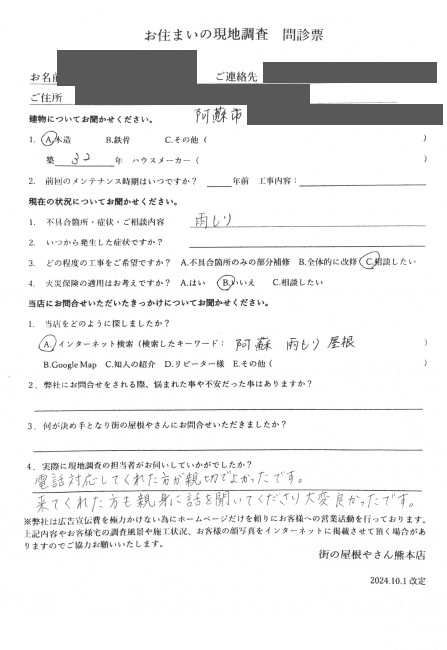 お住まいの現地調査 問診票
お名前
ご連絡先
ご住所
阿蘇市
建物についてお聞かせください。
1. A.木造 B.鉄骨 C.その他 ( )
築 32 年 ハウスメーカー ( )
2. 前回のメンテナンス時期はいつですか? 年前 工事内容:
現在の状況についてお聞かせください。
1. 不具合箇所・症状・ご相談内容 雨もり
2. いつから発生した症状ですか?
3. どの程度の工事をご希望ですか? A.不具合箇所のみの部分補修 B.全体的に改修 C.相談したい
4. 火災保険の適用はお考えですか? A.はい B.いいえ C.相談したい
当店にお問合せいただいたきっかけについてお聞かせください。
1. 当店をどのように探しましたか?
A.インターネット検索 (検索したキーワード: 阿蘇 雨もり 屋根 )
B.Google Map C.知人の紹介 D.リピーター様 E.その他 ( )
2. 弊社にお問合せをされる際、悩まれた事や不安だった事はありますか?
3. 何が決め手となり街の屋根やさんにお問合せいただきましたか?
4. 実際に現地調査の担当者がお伺いしていかがでしたか?
電話対応してくれた方が親切でよかったです。
来てくれた方も親身に話を聞いてくださり大変良かったです。
※弊社は広告宣伝費を極力かけない為にホームページだけを頼りにお客様への営業活動を行っております。
上記内容やお客様宅の調査風景や施工状況、お客様の顔写真をインターネットに掲載させて頂く場合があ
りますのでご協力お願いいたします。
街の屋根やさん熊本店
2024.10.1 改定